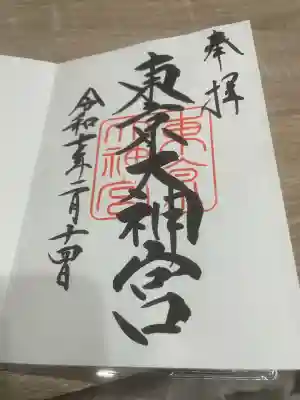 奉拝
東京大神宮
東京大神宮
令和七年二月十四日